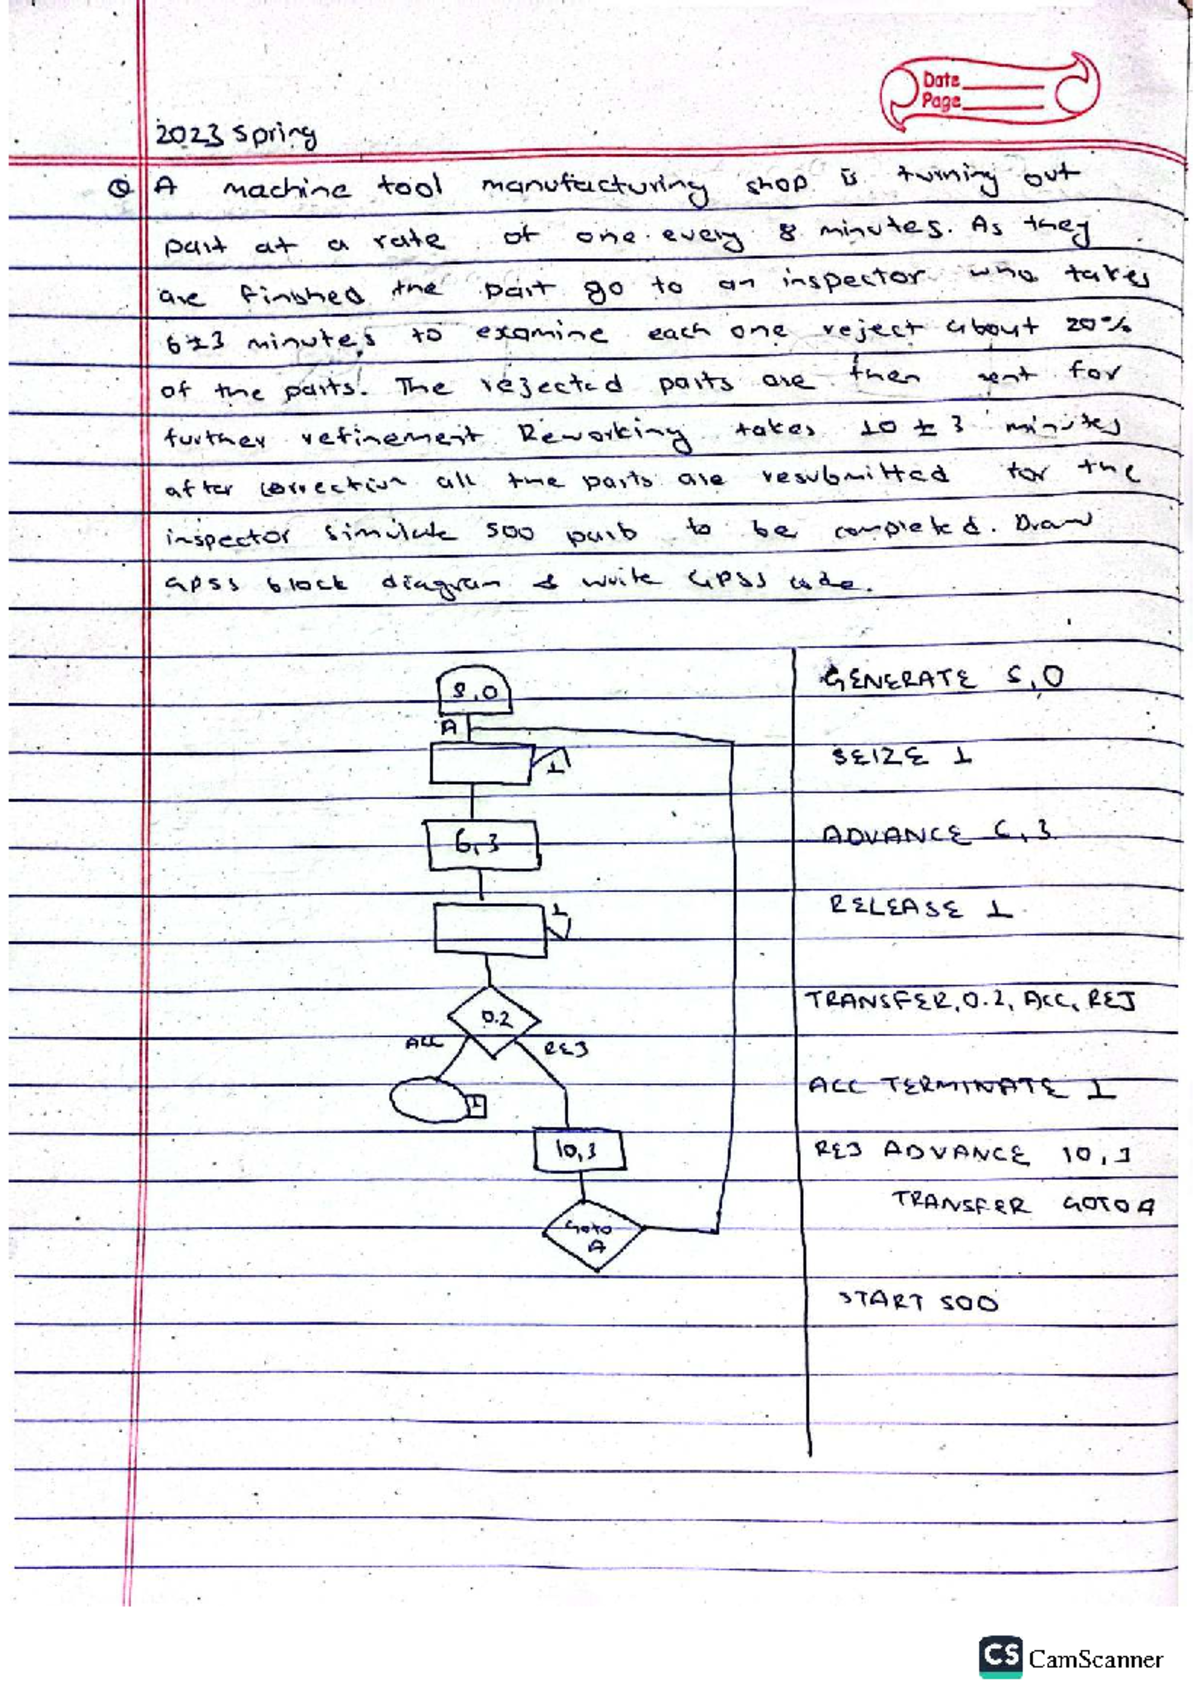 Date
Page
2023 spring
Q A machine tool manufacturing shop is turning out
part at a rate of one every 8 minutes. As they
are finished the part go to an inspector who takes
6±3 minutes to examine each one reject about 20%
of the parts. The rejected parts are then sent for
further refinement Reworking takes 10 ± 3 minutes
after correction all the parts are resubmitted for the
inspector simulate 500 parts to be completed. Draw
GPSS block diagram & write GPSS code.
8,0
GENERATE 8,0
A
1
SEIZE 1
6,3
ADVANCE 6,3
1
RELEASE 1
0.2
TRANSFER,0.2, ACC, REJ
ACC
REJ
1
ACC TERMINATE 1
10,3
REJ ADVANCE 10,3
TRANSFER GOTO A
Goto
A
START 500
CS CamScanner